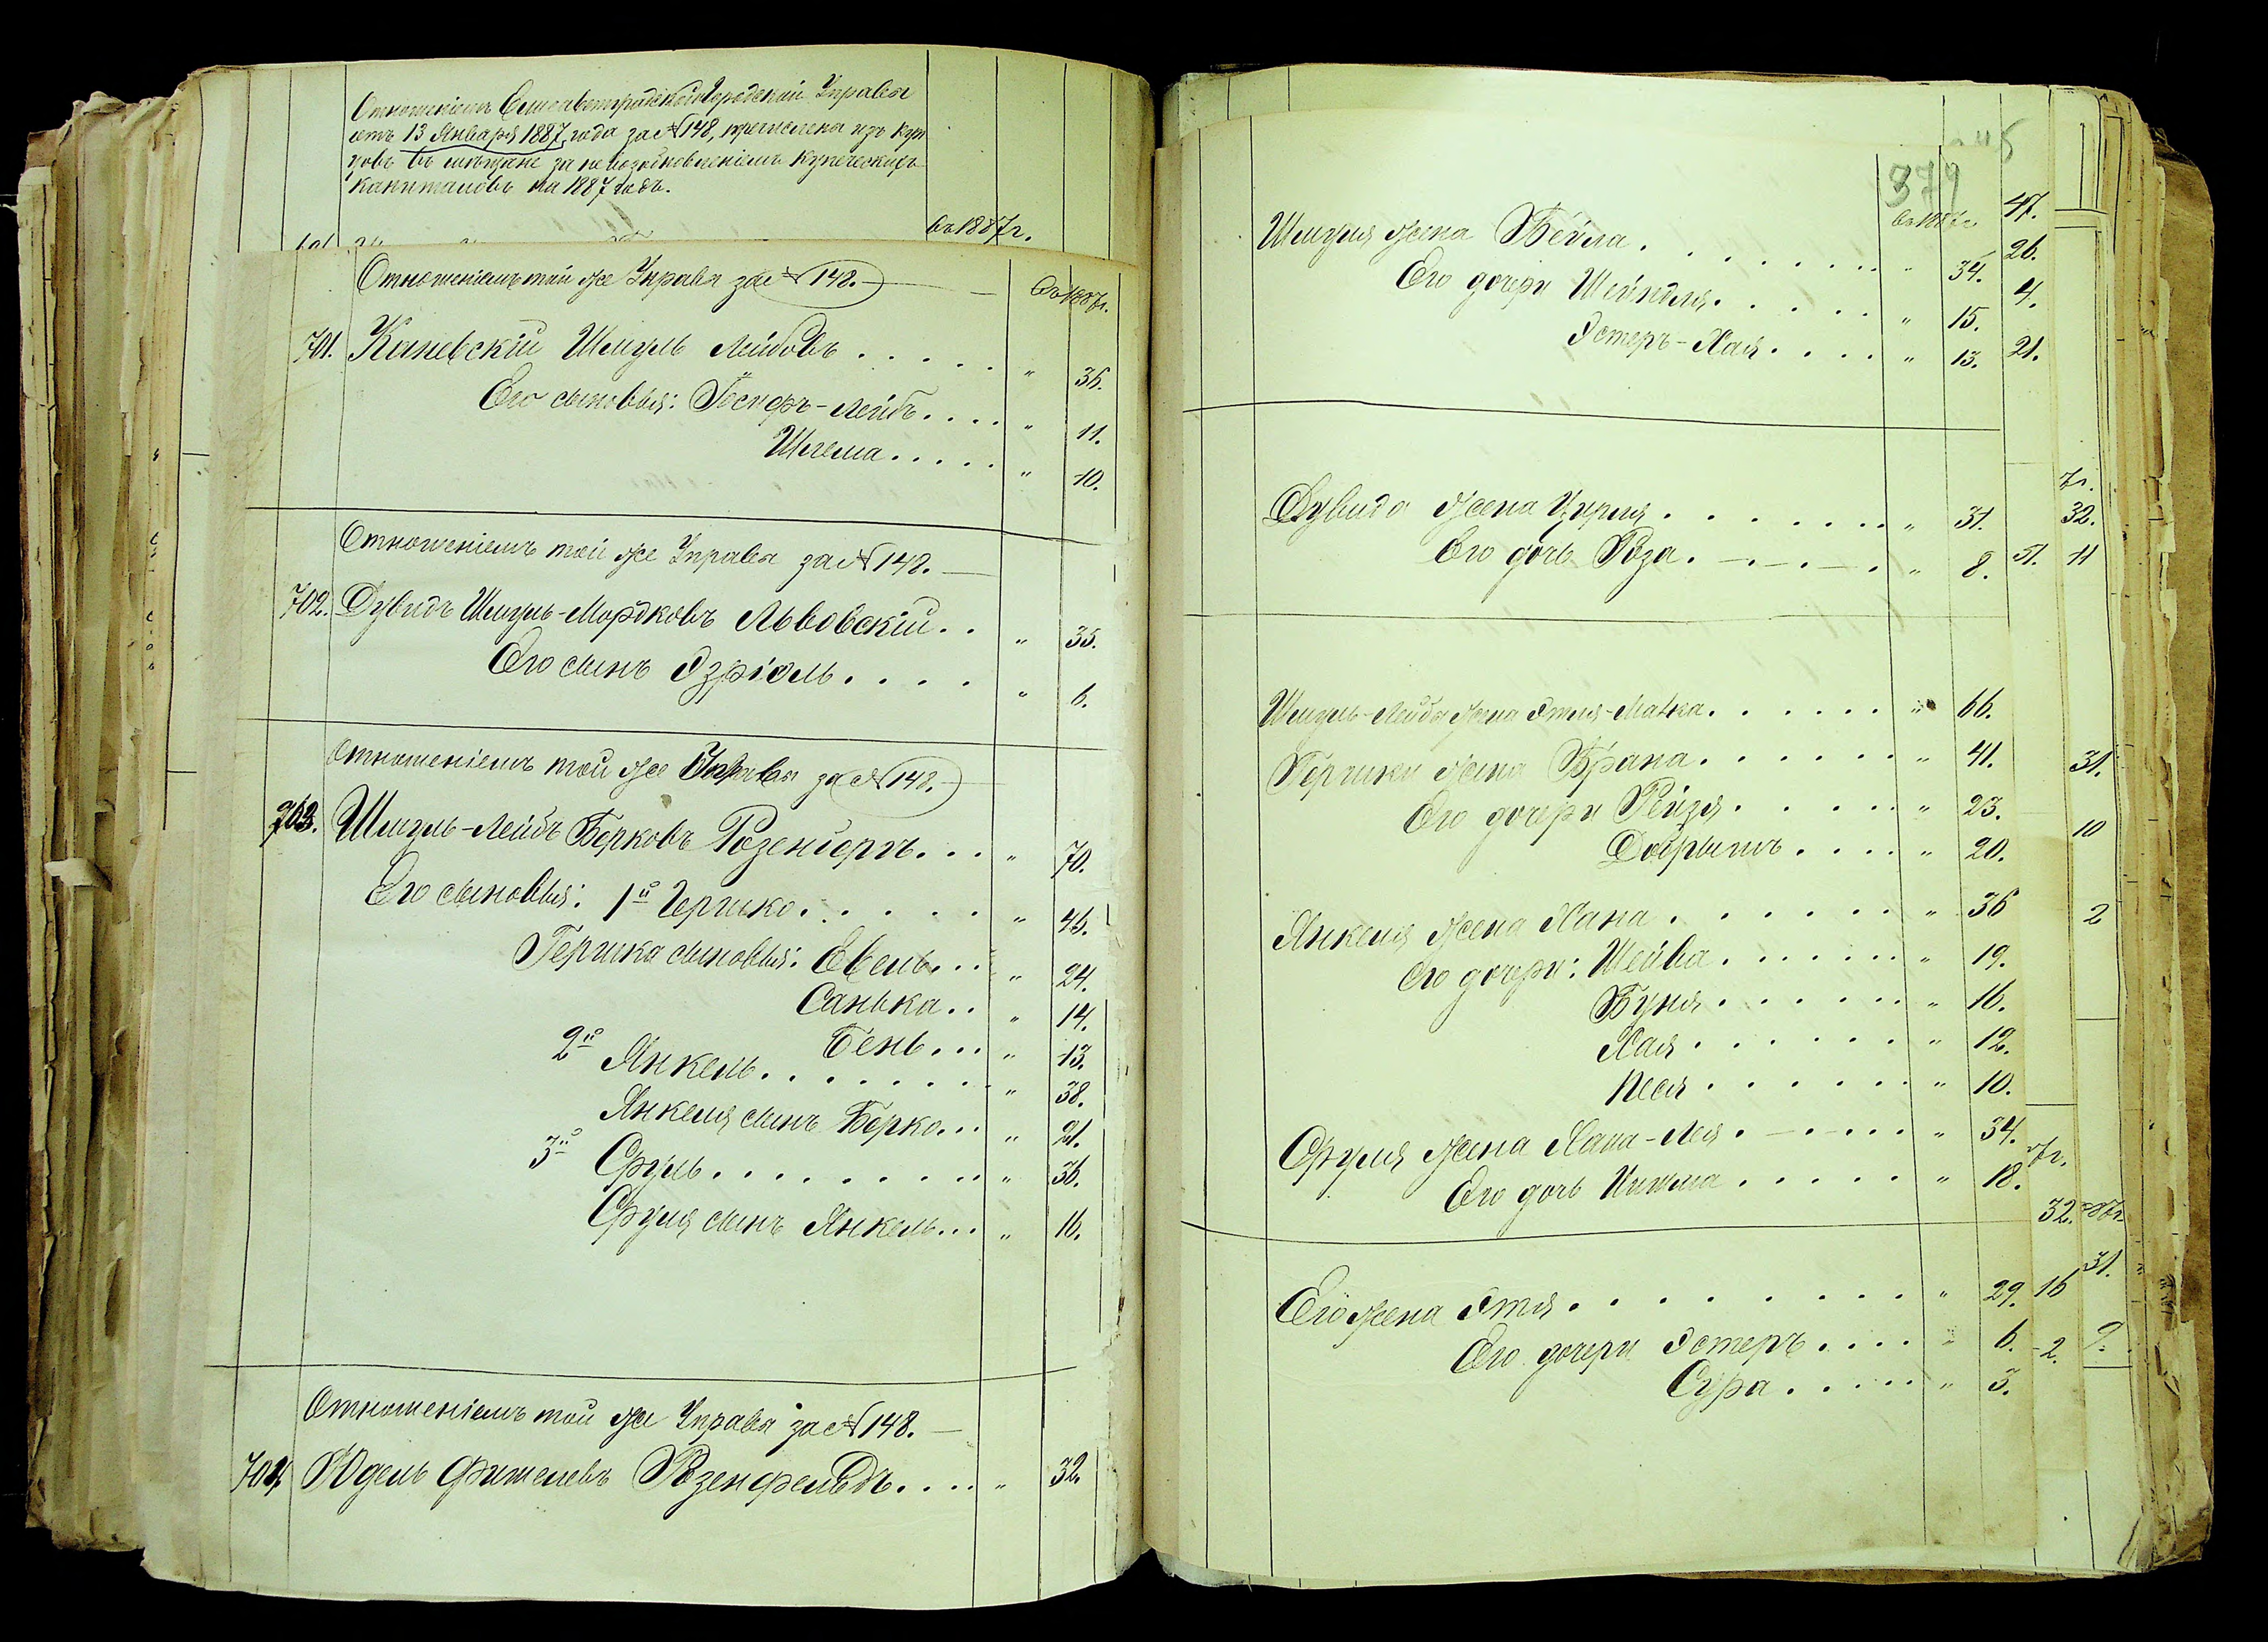 Отношеніемъ Елисаветградской Городской Управы
отъ 13 Января 1887 года за №148, причислена изъ куп
цовъ въ мѣщане за невозобновленіемъ купеческихъ
капиталовъ на 1887 годъ.
въ 1887г.
Отношеніемъ той же Управы за №148.
въ 1887г.
701. Каневскій Шмуль Лейбовъ . . . . . " 36.
Его сыновья: Іосифъ-Лейбъ . . . . " 11.
Шлема . . . . . " 10.
Отношеніемъ той же Управы за №148.
702. Дувидъ Шмуль-Мордковъ Львовскій . . " 35.
Его сынъ Эзріэль . . . . " 6.
Отношеніемъ той же Управы за №148.
703. Шмуль-Лейбъ Берковъ Розенбергъ . . . " 70.
Его сыновья: 1й Гершко . . . . . " 46.
Гершка сыновья: Евель . . . " 24.
Санька . . " 14.
Бень . . . " 13.
2й Янкель . . . . . . . " 38.
Янкеля сынъ Берко . . . " 21.
3й Сруль . . . . . . . . " 36.
Сруля сынъ Янкель . . . " 16.
Отношеніемъ той же Управы за №148.
704. Юдель Фишелевъ Розенфельдъ . . . . " 32.
379
въ 1887г.
47.
Шмуля жена Бейла . . . . . . . " 34. 26.
Его дочери Шейндля . . . . . " 15. 4.
Эстеръ-Хая . . . . " 13. 21.
7г.
Дувида жена Цирля . . . . . . . " 31. 32.
Его дочь Роза . " 8. 51. 11
Шмуль-Лейба жена Этля-Малка . . . . . . " 66.
Гершки жена Брана . . . . . . " 41. 31.
Его дочери Рейзя . . . . . " 23.
Добрышъ . . . . " 20. 10
Янкеля жена Хана . . . . . . " 36 2
Его дочери: Шейва . . . . . . " 19.
Буня . . . . . . " 16.
Хая . . . . . . " 12.
Песя . . . . . . " 10.
Сруля жена Хана-Лея . " 34.
7г.
Его дочь Ципла . . . . . " 18.
32. 87г.
31.
Его жена Этя . . . . . . . . . " 29. 16
Его дочери Эстеръ . . . . " 6. 2. 9.
Сура . . . . . " 3.